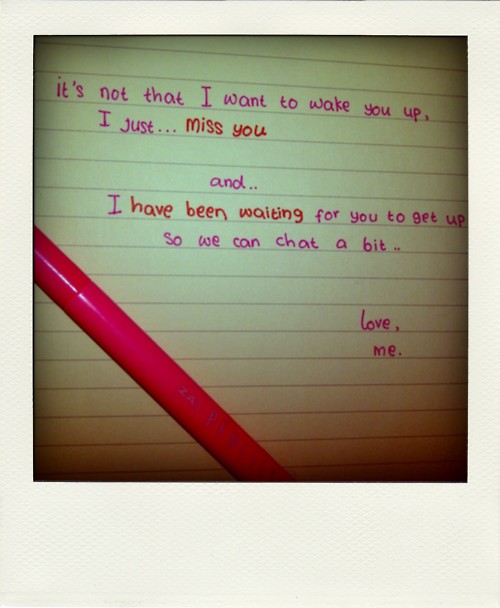 it's not that I want to wake you up,
I just... miss you
and..
I have been waiting for you to get up
so we can chat a bit..
love,
me.